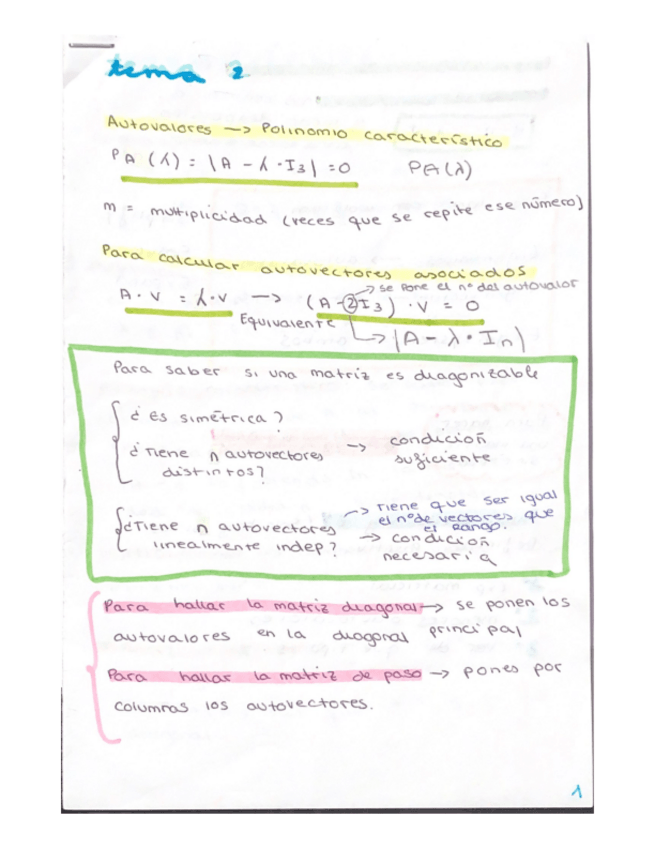 tema 2
Autovalores → Polinomio característico
PA (λ) = |A - λ · I3| = 0 PA(λ)
m = multiplicidad (veces que se repite ese número)
Para calcular autovectores asociados
→ se pone el nº del autovalor
A · v = λ · v → (A - 2I3) · v = 0
Equivalente ↳ |A - λ · In|
Para saber si una matriz es diagonizable
¿ Es simétrica ?
¿ Tiene n autovectores distintos? → condición suficiente
¿Tiene n autovectores linealmente indep ? → tiene que ser igual el nº de vectores que el rango.
→ condición necesaria
Para hallar la matriz diagonal → se ponen los
autovalores en la diagonal principal
Para hallar la matriz de paso → pones por
columnas los autovectores.
1